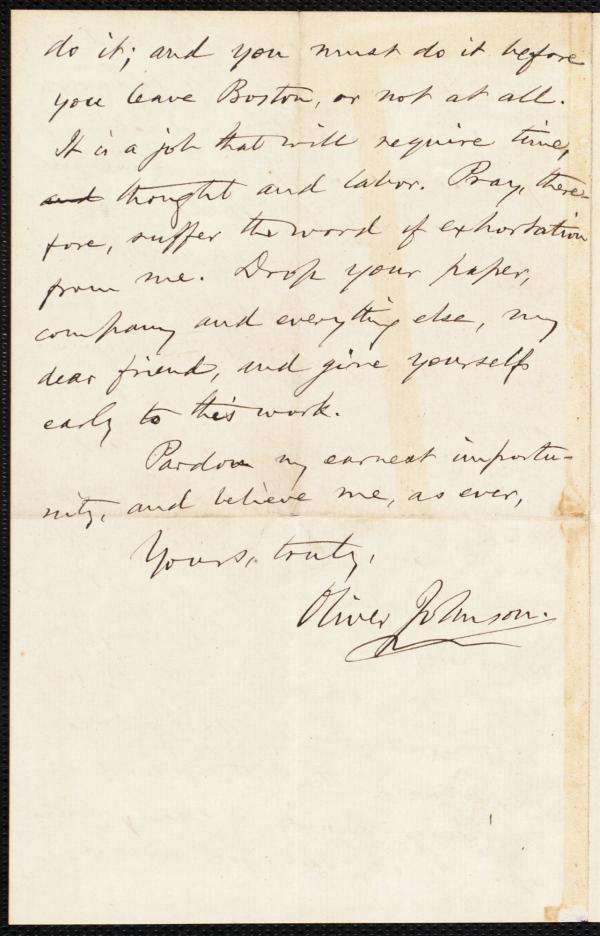 do it; and you must do it before
you leave Boston, or not at all.
It is a job that will require time,
and thought and labor. Pray, there-
fore, suffer the word of exhortation
from me. Drop your paper,
company and everything else, my
dear friend, and give yourself
early to this work.
Pardon my earnest importu-
nity, and believe me, as ever,
Yours, truly,
Oliver Johnson.